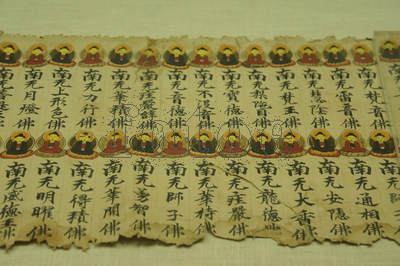 南无梵音佛
南无雷音佛
南无慧隂佛
南无梵王佛
南无寶德佛
南无不没音佛
南无音德佛
南无莊嚴辞佛
南无華積佛
南无力行佛
南无上形色佛
南无月燈佛
南无通相佛
南无安隐佛
南无大音佛
南无龍德佛
南无莊嚴佛
南无華持佛
南无師子佛
南无勇智佛
南无華開佛
南无得積佛
南无明曜佛
南无威德